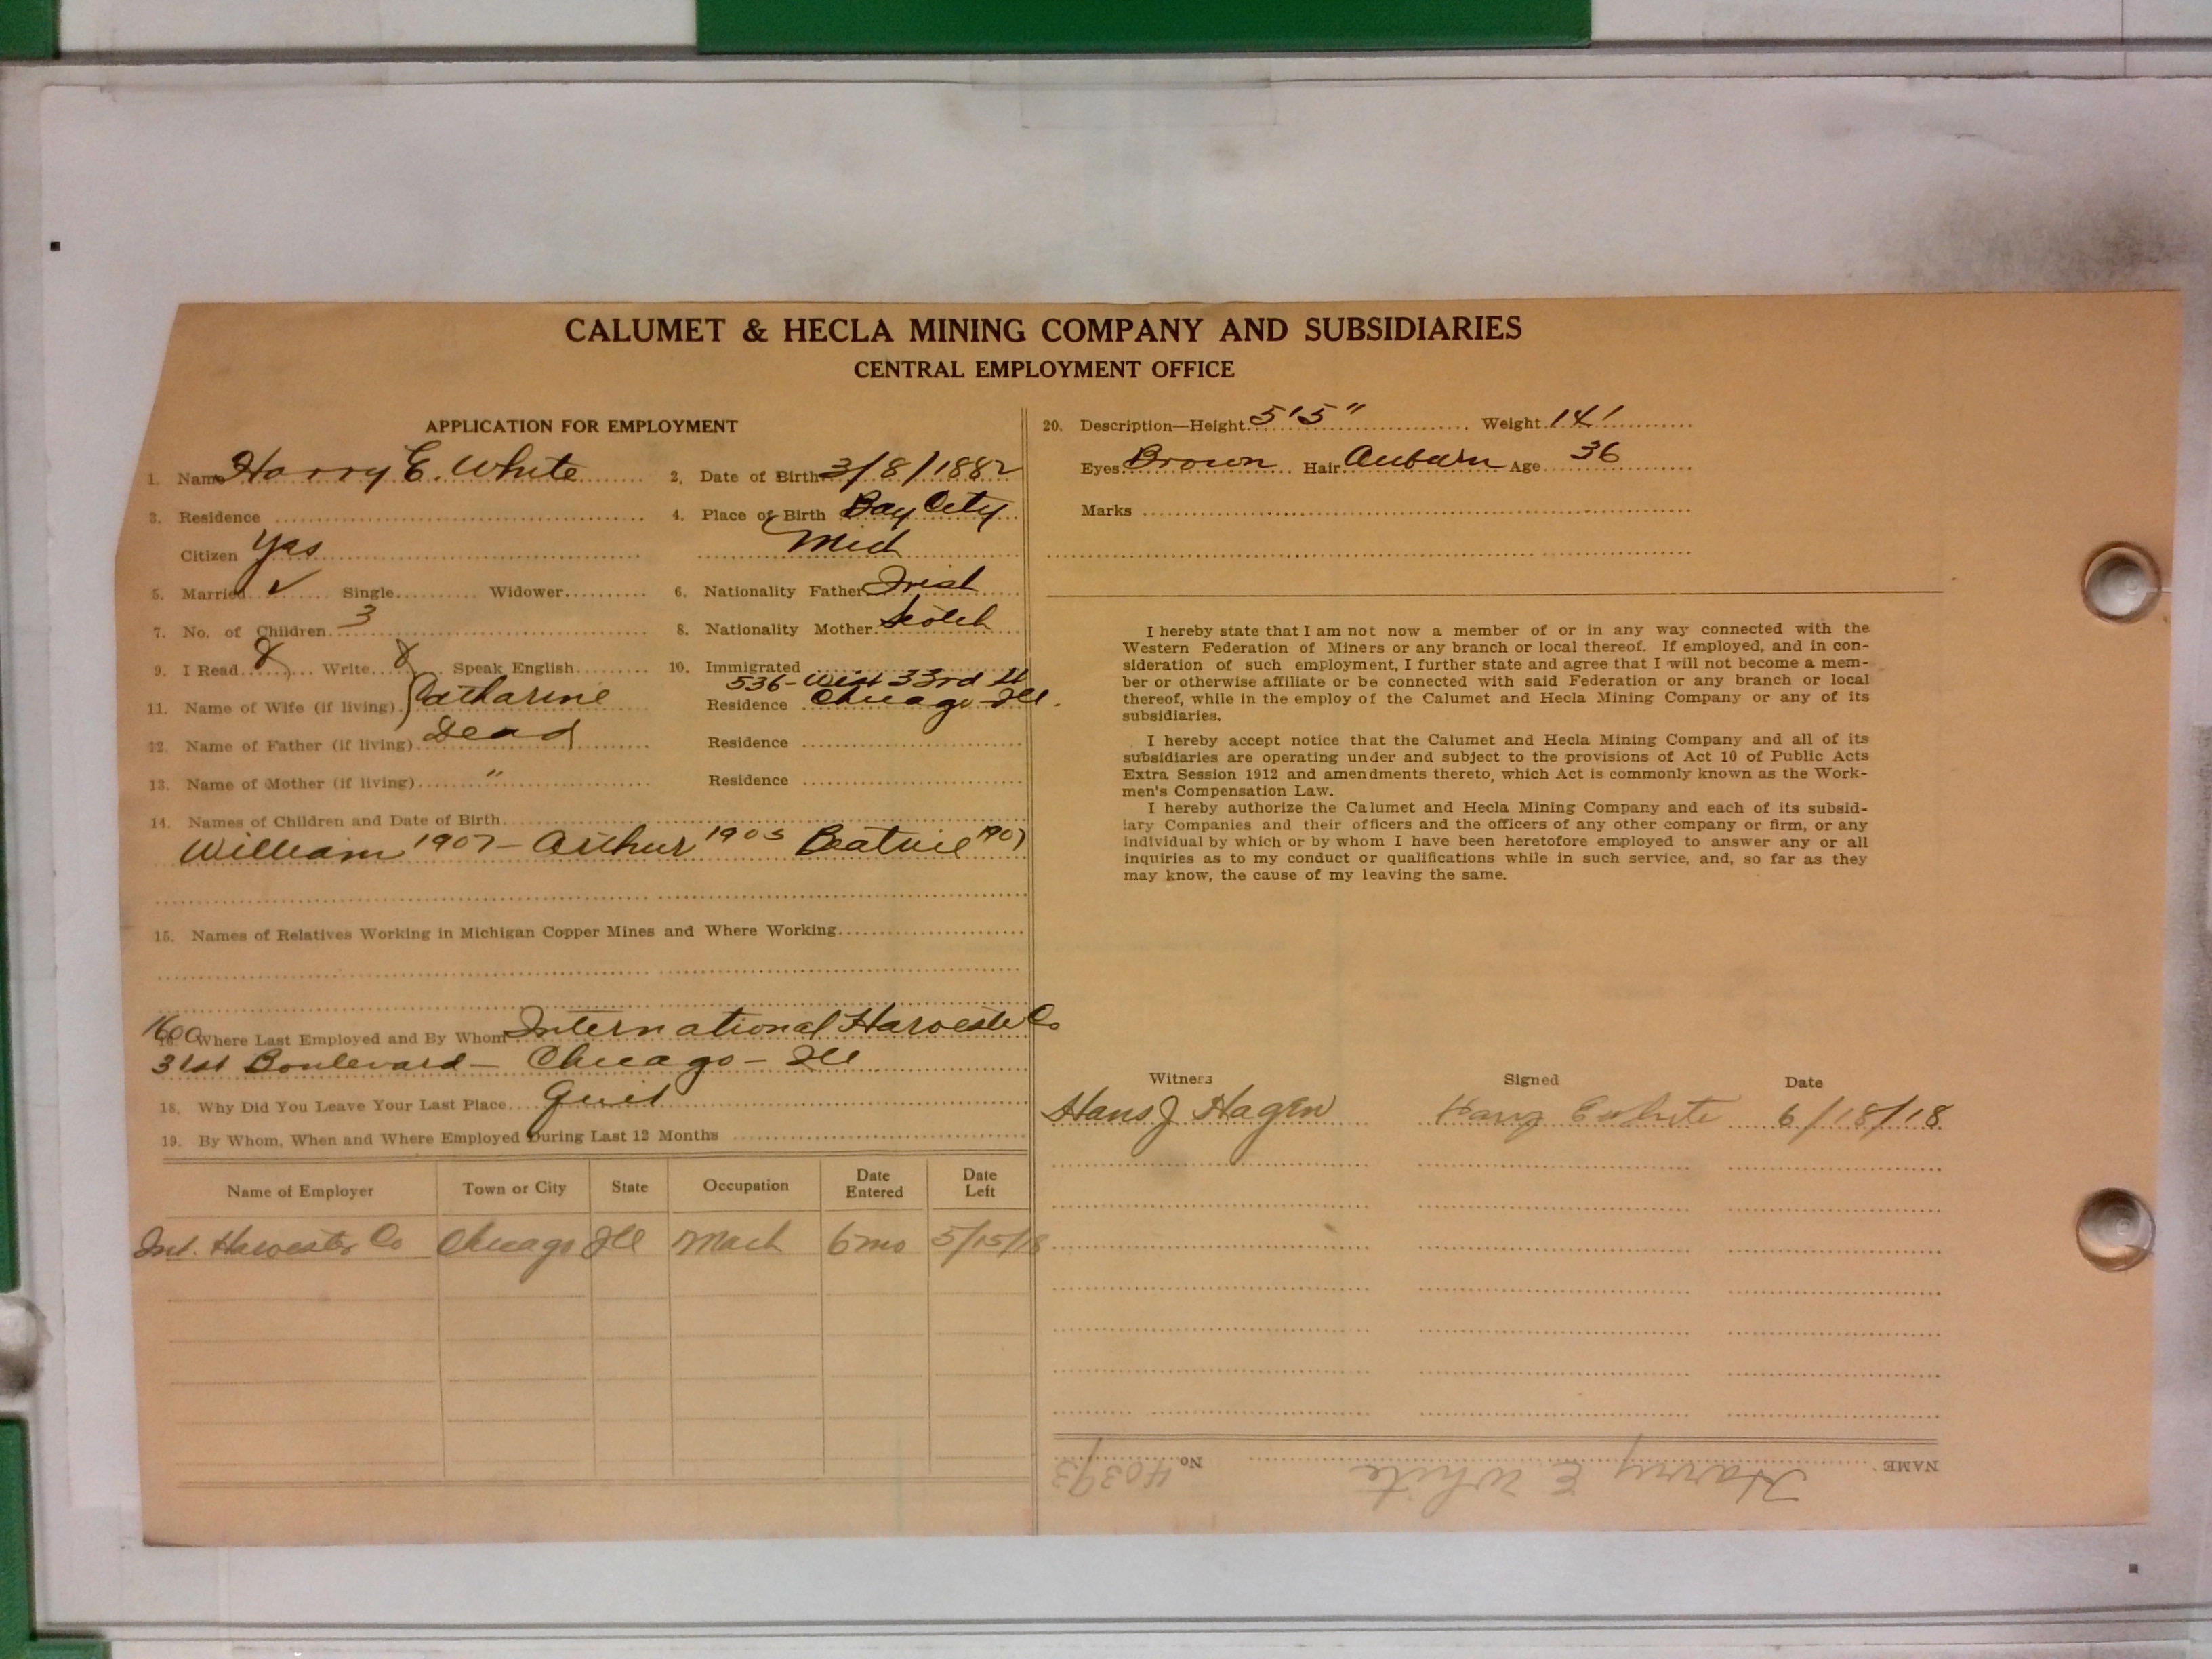 CALUMET & HECLA MINING COMPANY AND SUBSIDIARIES
CENTRAL EMPLOYMENT OFFICE
APPLICATION FOR EMPLOYMENT
1. Name Harry E. White 2. Date of Birth 3/8/1882
3. Residence 4. Place of Birth Bay City
Citizen Yes Mich
5. Married ✓ Single Widower 6. Nationality Father Irish
7. No. of Children 3 8. Nationality Mother Scotch
9. I Read Write Speak English 10. Immigrated
536 - West 33rd St
11. Name of Wife (if living) Catharine Residence Chicago Ill.
12. Name of Father (if living) Dead Residence
13. Name of Mother (if living) " Residence
14. Names of Children and Date of Birth
William 1907 - Arthur 1905 Beatrice
15. Names of Relatives Working in Michigan Copper Mines and Where Working
16. Where Last Employed and By Whom International Harvester Co
1600
31st Boulevard - Chicago - Ill
18. Why Did You Leave Your Last Place Quit
19. By Whom, When and Where Employed During Last 12 Months
Name of Employer Town or City State Occupation Date Entered Date Left
Int. Harvester Co Chicago Ill Mach 6 mo 5/15/18
20. Description—Height 5'5" Weight 141
Eyes Brown Hair Auburn Age 36
Marks
I hereby state that I am not now a member of or in any way connected with the
Western Federation of Miners or any branch or local thereof. If employed, and in con-
sideration of such employment, I further state and agree that I will not become a mem-
ber or otherwise affiliate or be connected with said Federation or any branch or local
thereof, while in the employ of the Calumet and Hecla Mining Company or any of its
subsidiaries.
I hereby accept notice that the Calumet and Hecla Mining Company and all of its
subsidiaries are operating under and subject to the provisions of Act 10 of Public Acts
Extra Session 1912 and amendments thereto, which Act is commonly known as the Work-
men's Compensation Law.
I hereby authorize the Calumet and Hecla Mining Company and each of its subsid-
iary Companies and their officers and the officers of any other company or firm, or any
individual by which or by whom I have been heretofore employed to answer any or all
inquiries as to my conduct or qualifications while in such service, and, so far as they
may know, the cause of my leaving the same.
Witness Signed Date
Hans J Hagen Harry E White 6/18/18
NAME Harry E White No. 40393